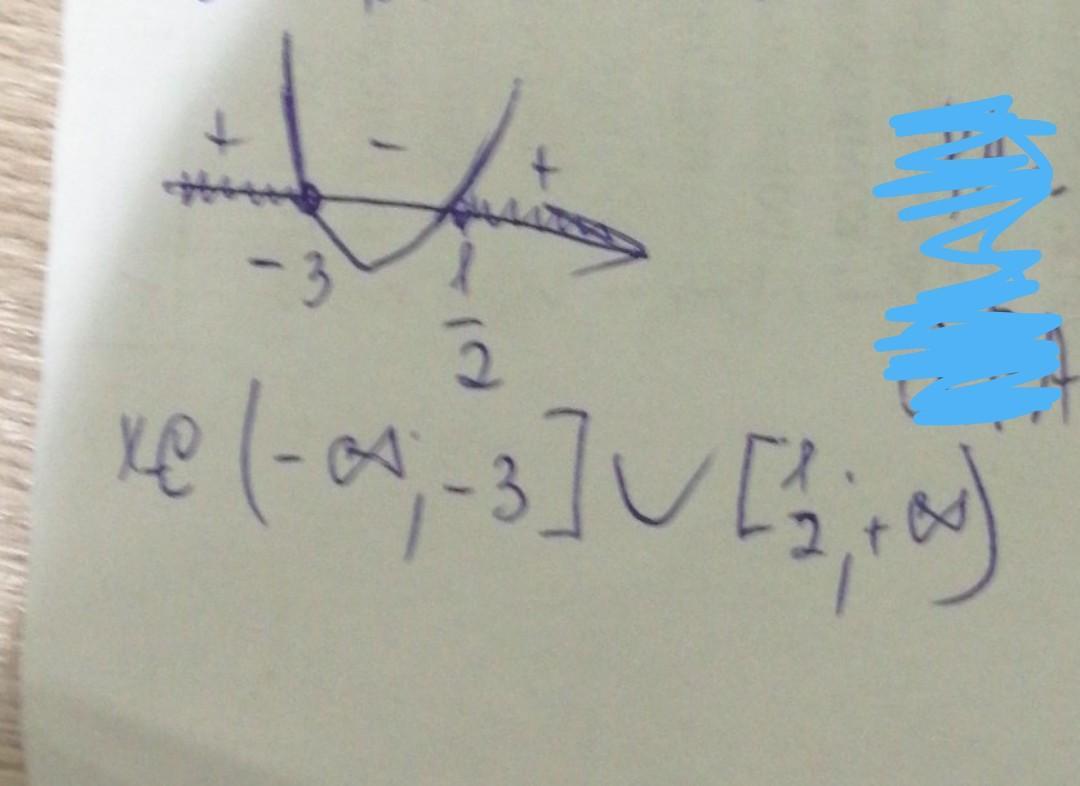 + - +
-3 1/2
x∈(-∞; -3] ∪ [1/2; +∞)